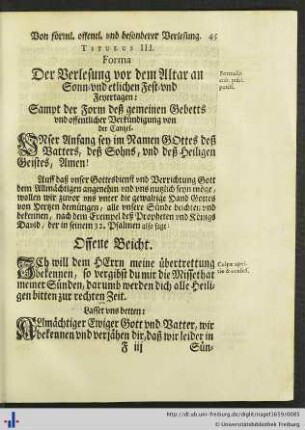 Von förml. offentl. vnd besonderer Verlesung. 45
TITULUS III.
Forma
Der Verlesung vor dem Altar an
Sonn-vnd etlichen Fest-vnd
Feyertagen:
Sampt der Form deß gemeinen Gebetts
vnd offentlicher Verkündigung von
der Cantzel.
UNser Anfang sey im Namen GOttes deß
Vatters, deß Sohns, vnd deß Heiligen
Geistes, Amen!
Auff daß vnser Gottesdienst vnd Verrichtung Gott
dem Allmächtigen angenehm vnd vns nutzlich seyn möge,
wollen wir zuvor vns vnter die gewaltige Hand Gottes
von Hertzen demütigen, alle vnsere Sünde beichten vnd
bekennen, nach dem Exempel deß Propheten vnd Königs
David, der in seinem 32. Psalmen also sagt:
Offene Beicht.
ICh will dem HErrn meine übertrettung
bekennen, so vergibst du mir die Missethat
meiner Sünden, darumb werden dich alle Heili-
gen bitten zur rechten Zeit.
Lasset vns betten:
ALlmächtiger Ewiger Gott vnd Vatter, wir
bekennen vnd verjähen dir, daß wir leider in
F iij Sün-
http://dl.ub.uni-freiburg.de/diglit/nagel1659/0085
© Universitätsbibliothek Freiburg